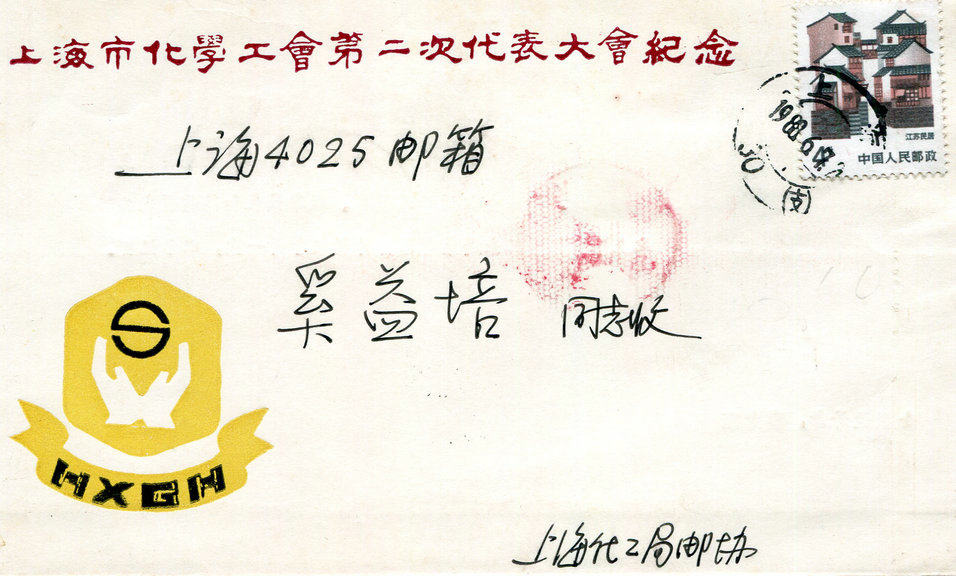 上海市化學工會第二次代表大會紀念
江苏民居
中国人民邮政
上海
(支)
上海4025邮箱
奚益培 同志收
HXGH
上海化工局邮协